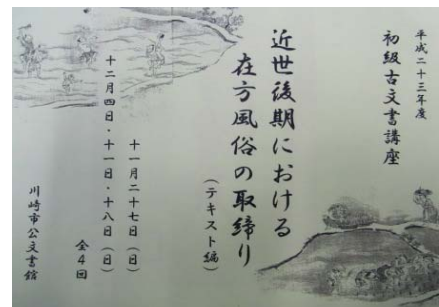 平成二十三年度
初級古文書講座
近世後期における
在方風俗の取締り
(テキスト編)
十一月二十七日(日)
十二月四日・十一日・十八日(日)
全4回
川崎市公文書館